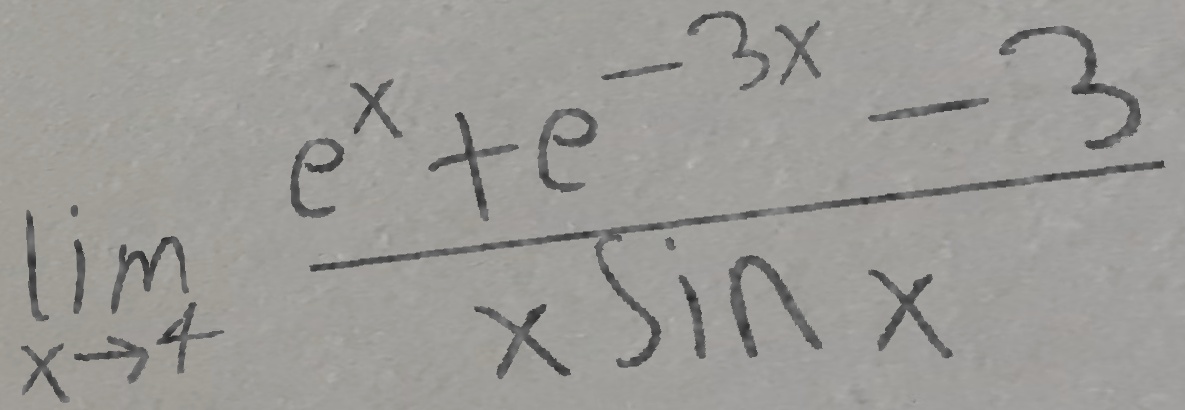 lim x→4 (e^x + e^{-3x} - 3) / (x sin x)